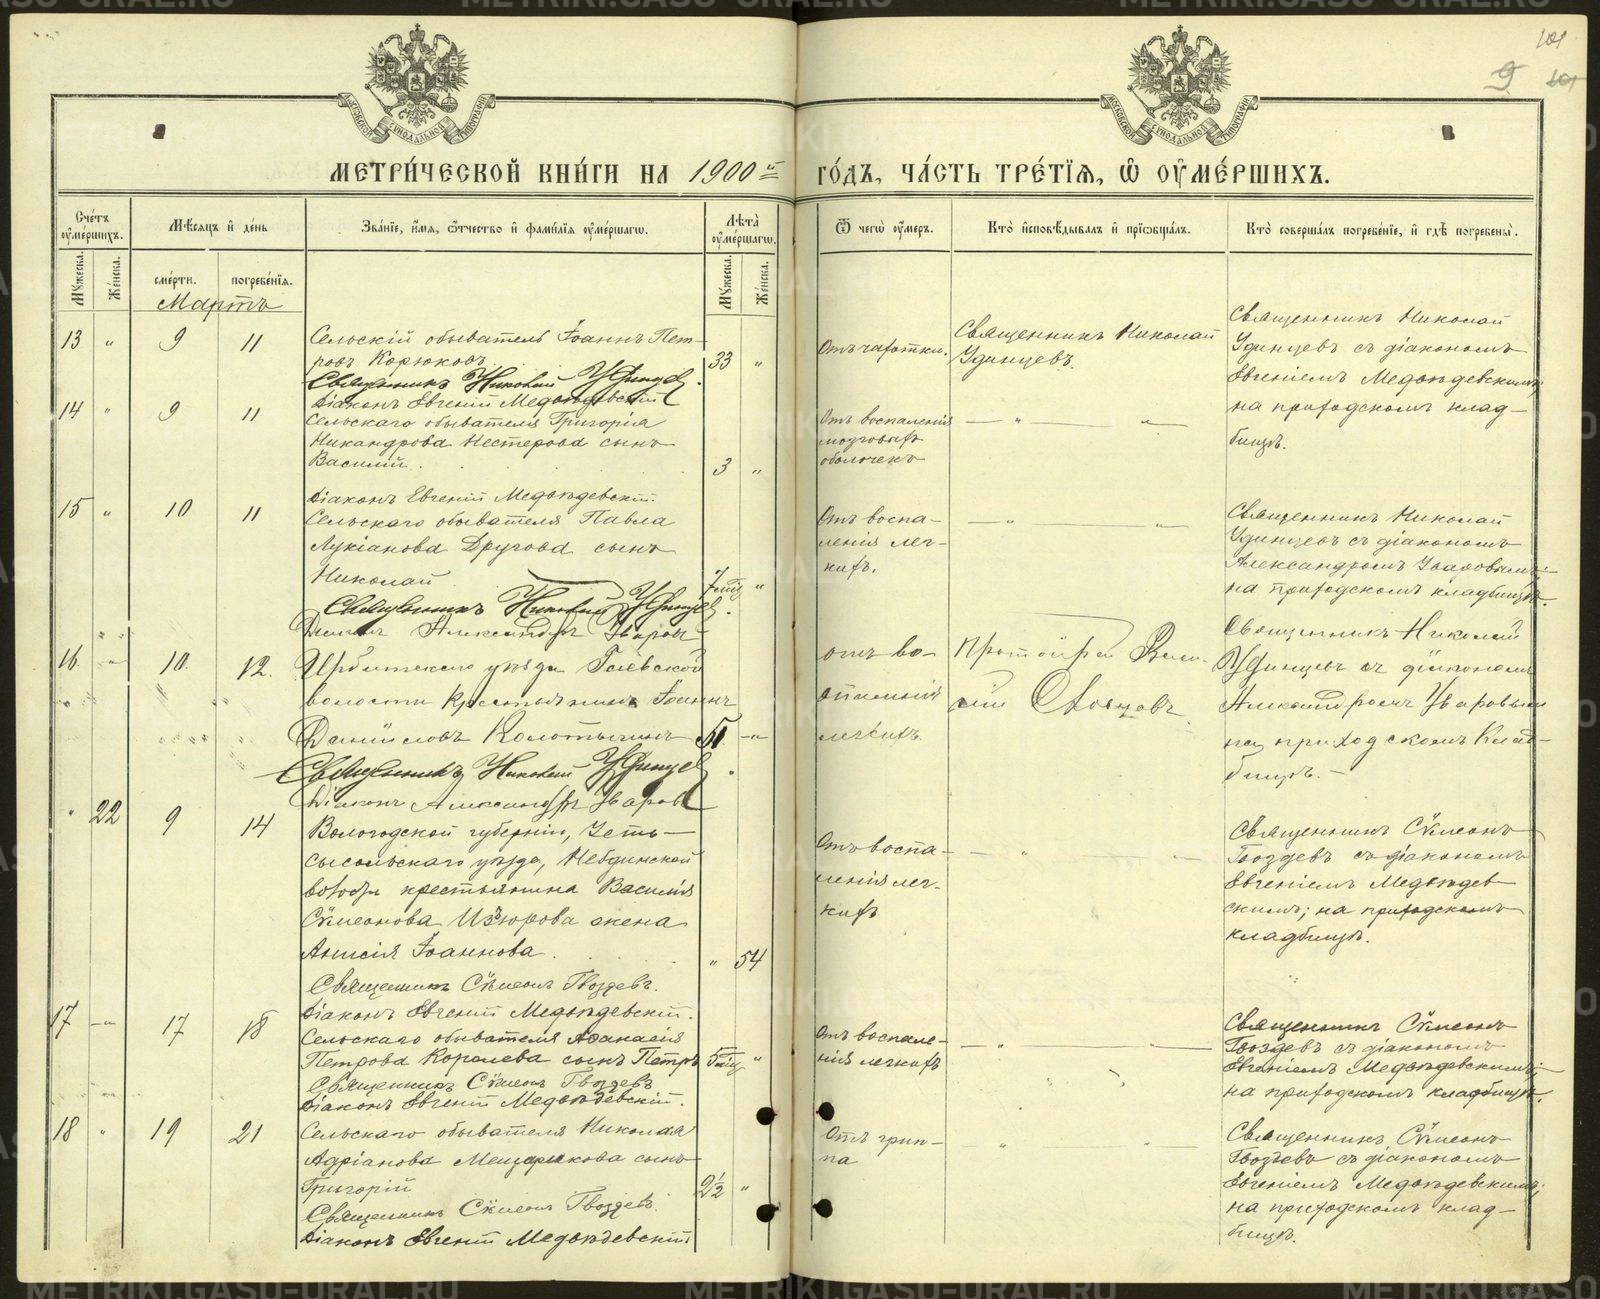 101
9 101
МЕТРИ́ЧЕСКОЙ КНИ́ГИ НА 1900й ГО́ДЪ, ЧА́СТЬ ТРЕ́ТІѦ, Ѿ ОУМЕ́РШИХЪ.
Сче́тъ оумершихъ.
Мужеска.
Женска.
Мѣсяцъ и день
смерти.
погребенія.
Званіе, имя, отчество и фамилія оумершаго.
Лѣта оумершаго.
Мужеска.
Женска.
Ѿ чего оумеръ.
Кто исповѣдывалъ и пріобщалъ.
Кто совершалъ погребеніе, и гдѣ погребены.
Мартъ
13 „ 9 11
Сельскій обыватель Іоаннъ Пет-
ровъ Корюковъ 33 „
Священникъ Николай Удинцев
Діаконъ Евгеній Медвѣдевскій
Отъ чахотки.
Священникъ Николай
Удинцевъ.
Священникъ Николай
Удинцевъ съ діакономъ
Евгеніемъ Медвѣдевскимъ;
на приходскомъ клад-
бищѣ.
14 „ 9 11
Сельскаго обывателя Григорія
Никандрова Нестерова сынъ
Василій. 3 „
Діаконъ Евгеній Медвѣдевскій.
Отъ воспаленія
мозговыхъ
оболочекъ
— „ — „ —
15 „ 10 11
Сельскаго обывателя Павла
Лукіанова Другова сынъ
Николай 7 мѣс „
Священникъ Николай Удинцев.
Діаконъ Александръ Уваровъ
Отъ воспа-
ленія лег-
кихъ.
— „ — „ —
Священникъ Николай
Удинцевъ съ діакономъ
Александромъ Уваровымъ;
на приходскомъ кладбищѣ.
16. „ 10. 12.
Ирбитскаго уѣзда Гаевской
волости крестьянинъ Іоаннъ
Даніиловъ Колотыгинъ 51. —„
Священникъ Николай Удинцев.
Діаконъ Александръ Уваров
отъ во-
спаленія
легкихъ.
Протоіерей Васи-
лій Словцовъ
Священникъ Николай
Удинцевъ съ діакономъ
Александромъ Уваровым
на приходскомъ Клад-
бищѣ. —
„ 22 9 14
Вологодской губерніи, Усть-
сысольскаго уѣзда, Небдинской
волости крестьянина Василія
Сѵмеонова Изъюрова жена
Анисія Іоаннова. „ 54
Священникъ Сѵмеон Гвоздевъ.
Діаконъ Евгеній Медвѣдевскій.
Отъ воспа-
ленія лег-
кихъ
— „ — „ —
Священникъ Сѵмеонъ
Гвоздевъ съ діакономъ
Евгеніемъ Медвѣдев
скимъ; на приходскомъ
кладбищѣ.
17 —„ 17 18
Сельскаго обывателя Аѳанасія
Петрова Королева сынъ Петръ 5 мѣс „
Священникъ Сѵмеон Гвоздевъ
Діаконъ Евгеній Медвѣдевскій.
Отъ воспале-
нія легкихъ
— „ — „ —
Священникъ Сѵмеонъ
Гвоздевъ съ діакономъ
Евгеніемъ Медвѣдевскимъ;
на приходскомъ кладбищѣ.
18 „ 19 21
Сельскаго обывателя Николая
Адріанова Мещерякова сынъ
Григорій 2½ „
Священникъ Сѵмеон Гвоздевъ.
Діаконъ Евгеній Медвѣдевскій
Отъ грип-
па
— „ — „ —
Священникъ Сѵмеонъ
Гвоздевъ съ діакономъ
Евгеніемъ Медвѣдевскимъ;
на приходскомъ клад-
бищѣ.
METRIKI.GASO-URAL.RU